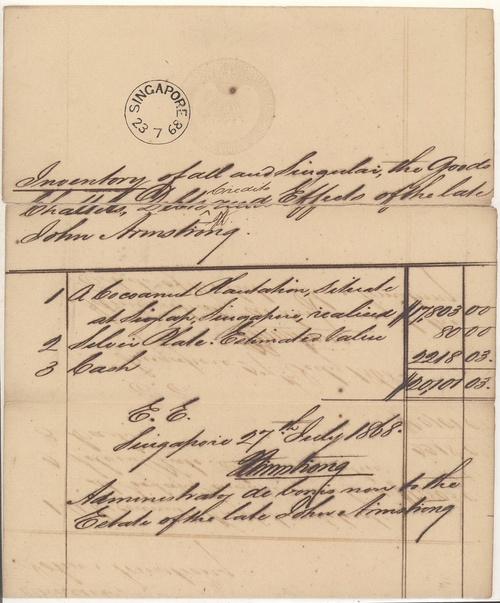 SINGAPORE
23 7 68
Inventory of all and Singular, the Goods
Credits
Chattels, Debts and Effects of the late
John Armstrong.
1 A Cocoanut Plantation, situate
at Siglap, Singapore, realised $17,803 00
2 Silver Plate. Estimated Value 80 00
3 Cash 2218 03.
$20,101 03.
E. E.
Singapore 27th July 1868.
Armstrong
de bonis non to the
Estate of the late John Armstrong